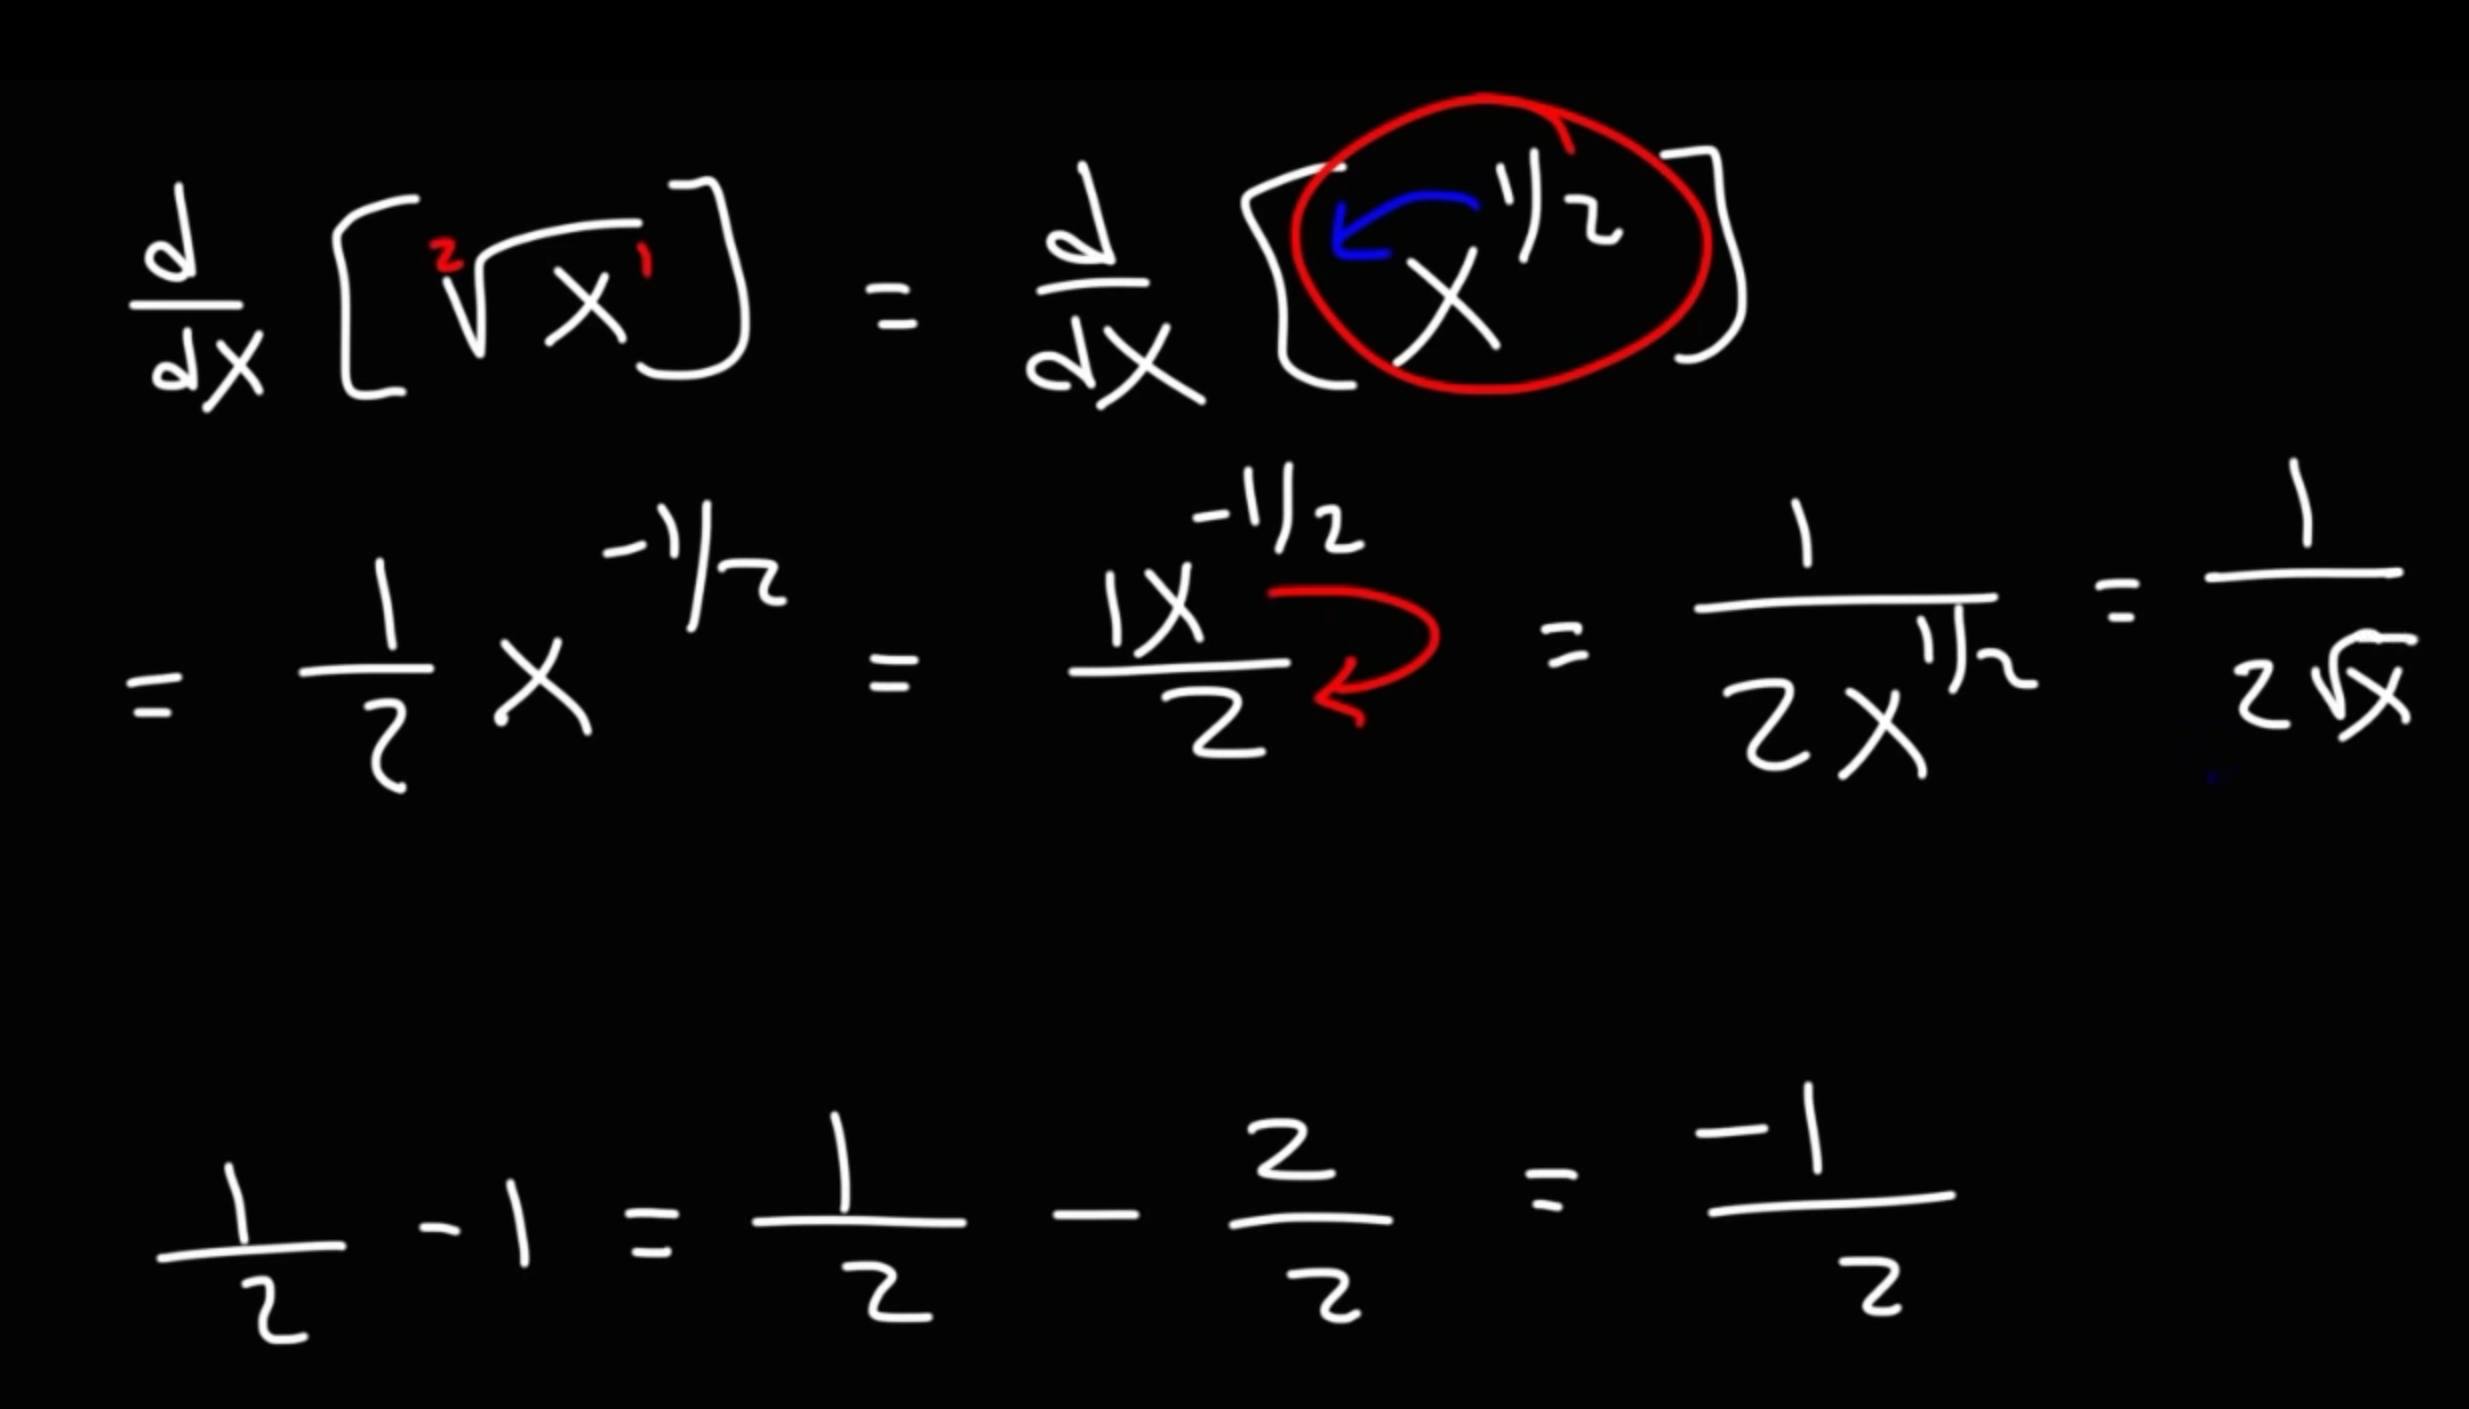 d/dx [²√x¹] = d/dx [x^1/2]
= 1/2 x^-1/2 = 1x^-1/2 / 2 = 1 / 2x^1/2 = 1 / 2√x
1/2 - 1 = 1/2 - 2/2 = -1/2